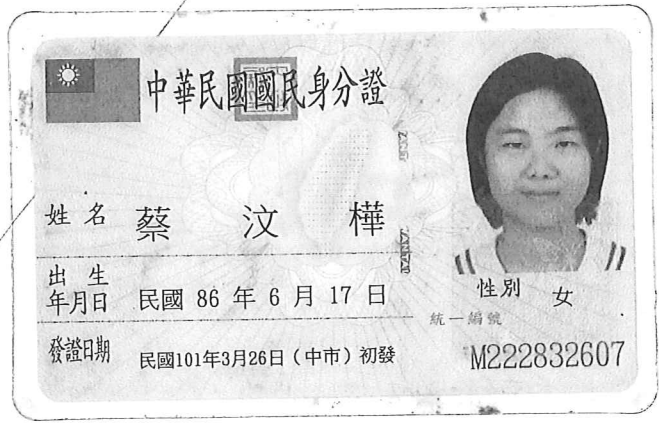 中華民國國民身分證
姓名 蔡汶樺
出生年月日 民國 86 年 6 月 17 日
性別 女
發證日期 民國101年3月26日（中市）初發
統一編號
M222832607